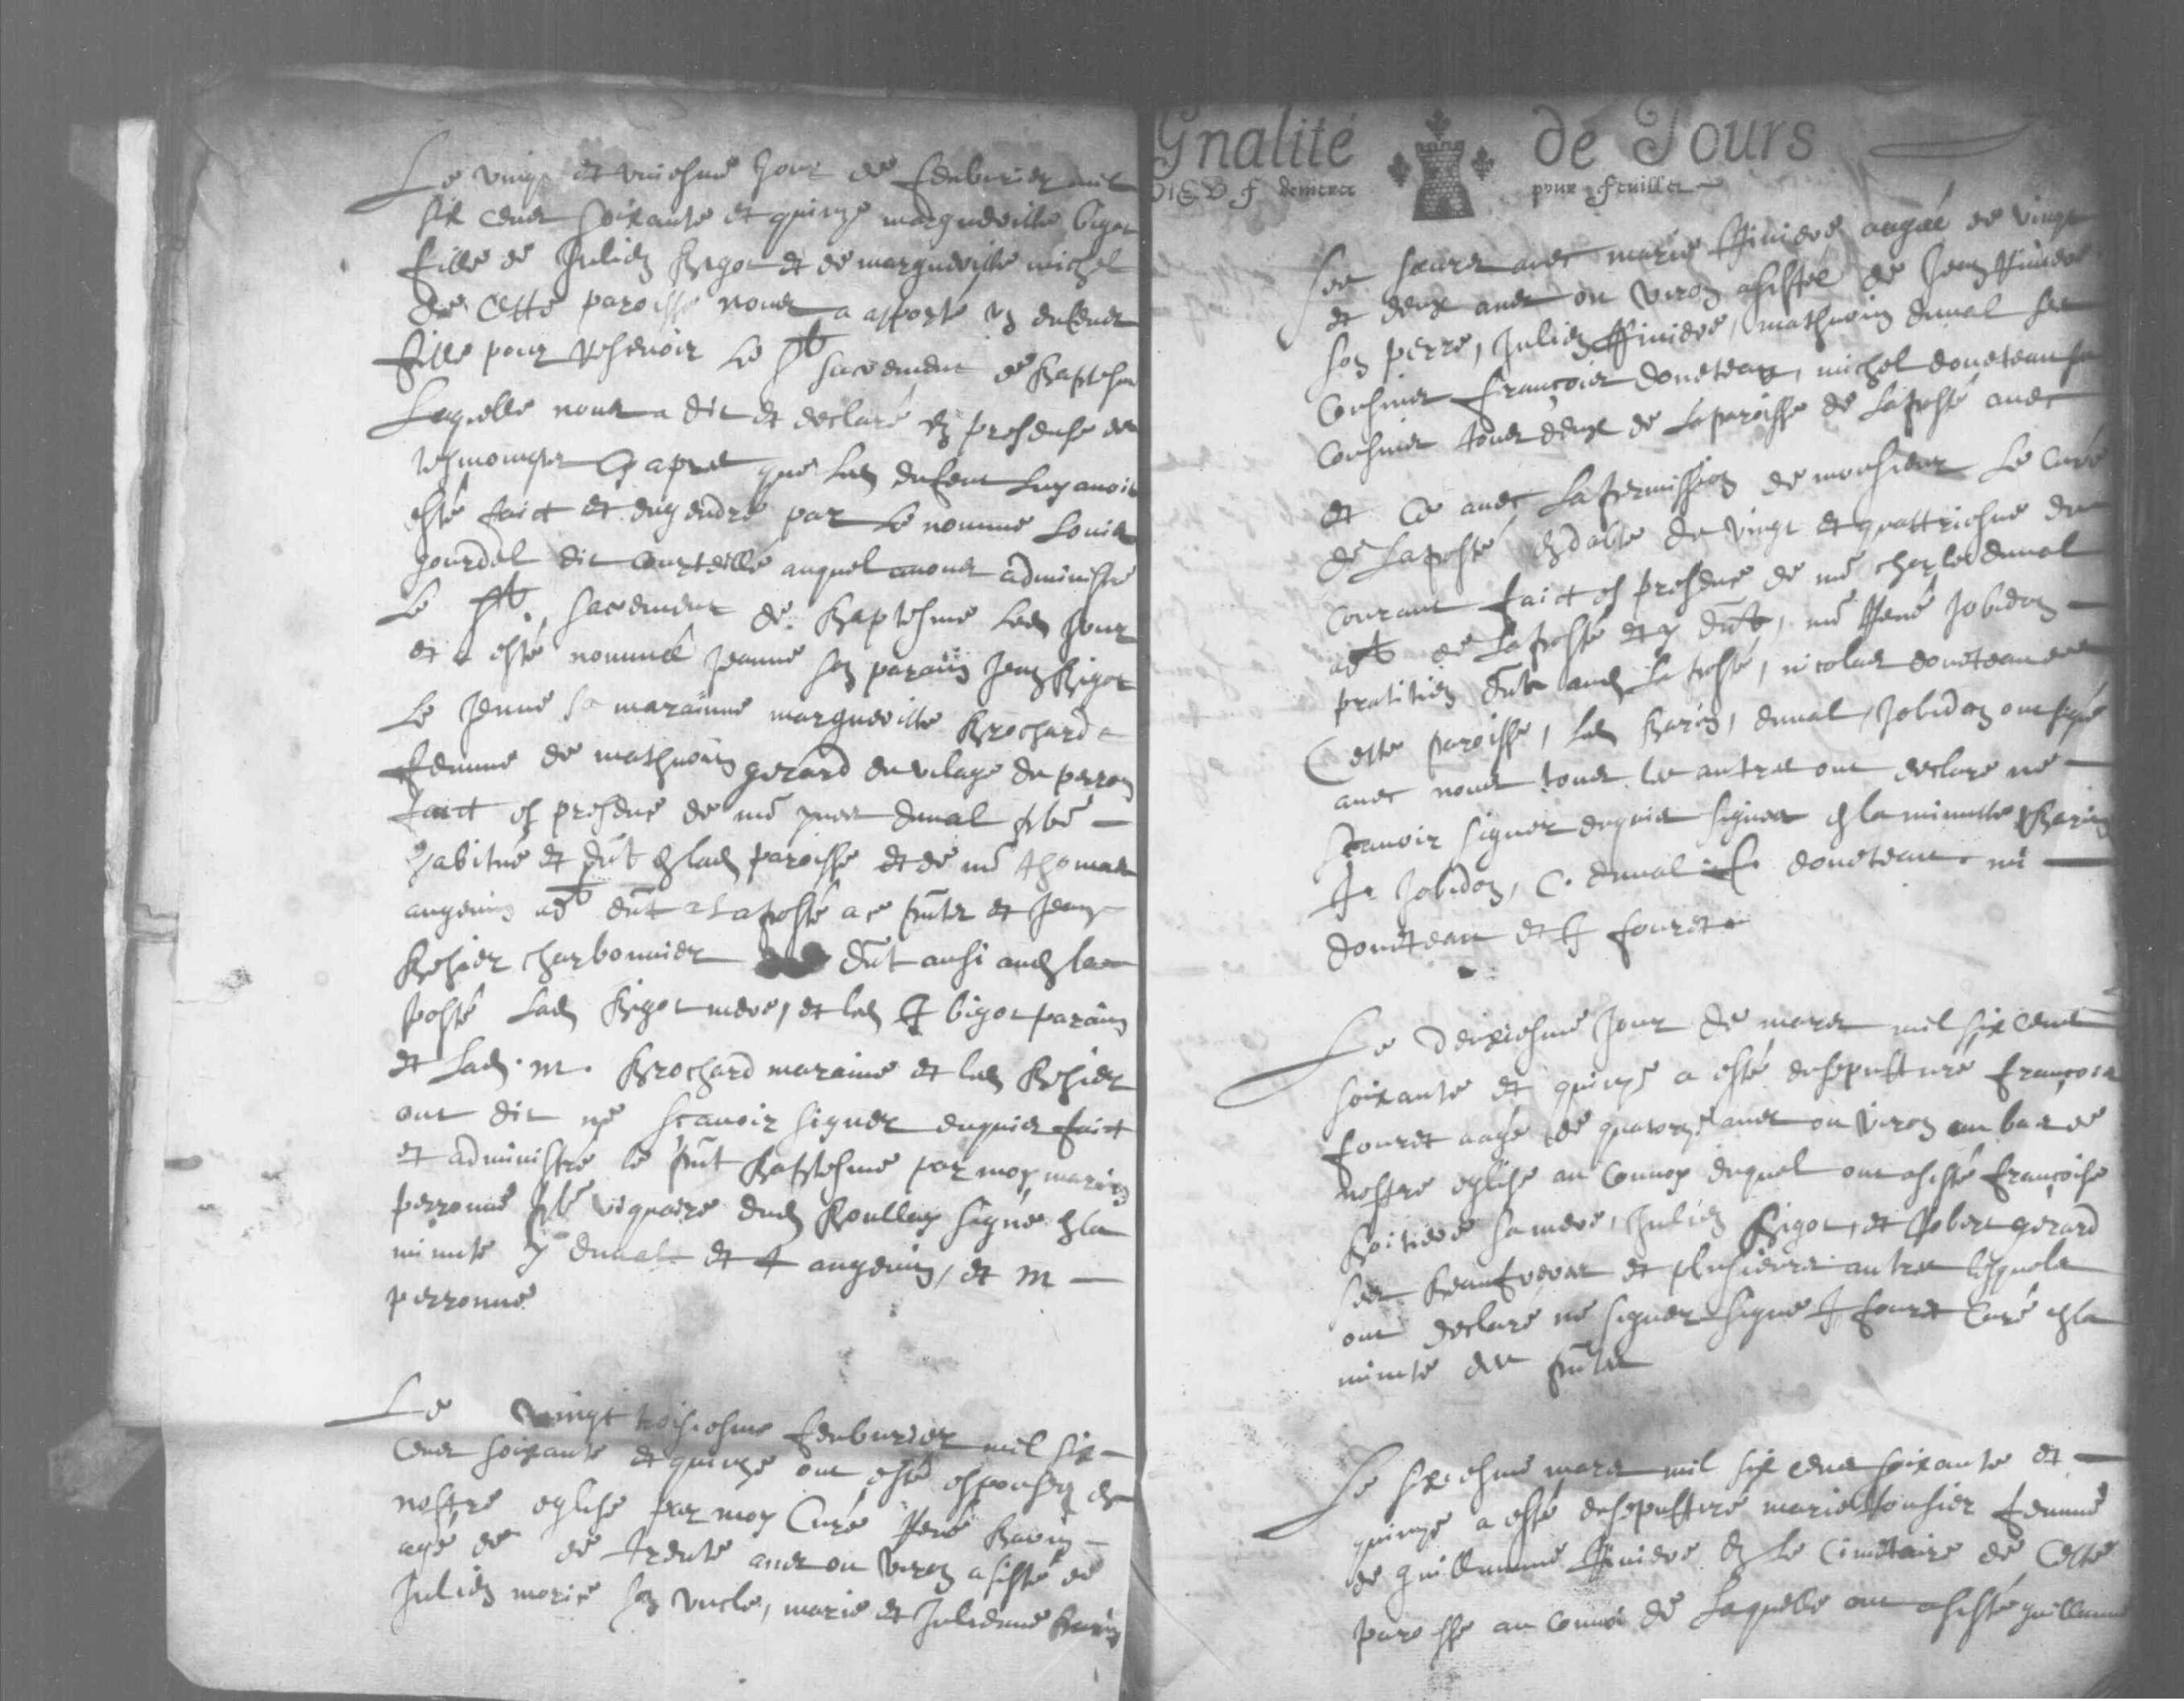 Le vingt et uniesme jour de febvrier mil
six cens soixante et quinze margueritte bigot
fille de Julien Bigot et de margueritte michel
de cette paroisse nous a apporté un enfent
fille pour resevoir le st sacrement de baptesme
Laquelle nous a dit et declaré en presense des
tesmoings cy apres que led enfent luy avoit
esté faict et engendré par le nommé Louis
gourdel dit courteille auquel avons administré
le st sacrement de baptesme led jour
et a esté nommée jeanne son parain jean Bigot
le jeune sa maraine margueritte Brochard
femme de mathurin gerard du vilage du perron
faict es presence de me yves duval pbre
habitué et dmt en lad paroisse et de me thomas
angevin dmt a la posté a ce pnts et jean
Besier charbonnier dmt ausi aud la
posté lad Bigot mere, et led J bigot parain
et lad. m. Brochard maraine et led Besier
ont dit ne scavoir signer enquis faict
et administré le pnt baptesme par moy marin
perronne pbre viquaire dud Boullay signé en la
minute y duval et t angevin, et m
perronne
Le vingt troisiesme febvrier mil six
cens soixante et quinze ont esté espousez en
nostre eglise par moy Curé René Barin
agé de de trente ans ou viron asisté de
Julien morice son uncle, marie et Julienne Barin
gnalité de Tours
pour feuillet
ses seurs avec marie Riviere aagée de vingt
et deux ans ou viron asistée de jean Riviere
son perre, Julien Riviere, mathurin duval ses
cousins francois doneteau, michel doneteau ses
cousins tous deux de la paroisse de la posté avec
et ce avec la permission de monsieur le curé
de la posté en date du vingt et quattriesme du
courant faict es presence de me charles duval
de la posté et y dmt, me René Jobidon
pratitien dmt aud la posté, nicolas doneteau de
cette paroisse, led Barin, duval, Jobidon ont signé
avec nous tous les autres ont declaré ne
scavoir signer enquis signes en la minutte R Barin
R Jobidon, C. duval f doneteau. m
doneteau et J fouret
Le deuxiesme jour de mars mil six cens
soixante et quinze a esté ensepulturé francois
fouret aagé de quatorze ans ou viron au bas de
nostre eglise au convoy duquel ont asisté francoise
sa mere, Julien Bigot, et Robert gerard
ses et plusieurs autres lesquels
ont declaré ne signer signé J fouret Curé en la
minute des pntes
Le sixiesme mars mil six cens soixante et
quinze a esté ensepulturé marie femme
de guillaume Riviere en le cimetaire de cette
paroisse au convoi de laquelle ont asisté guillaume